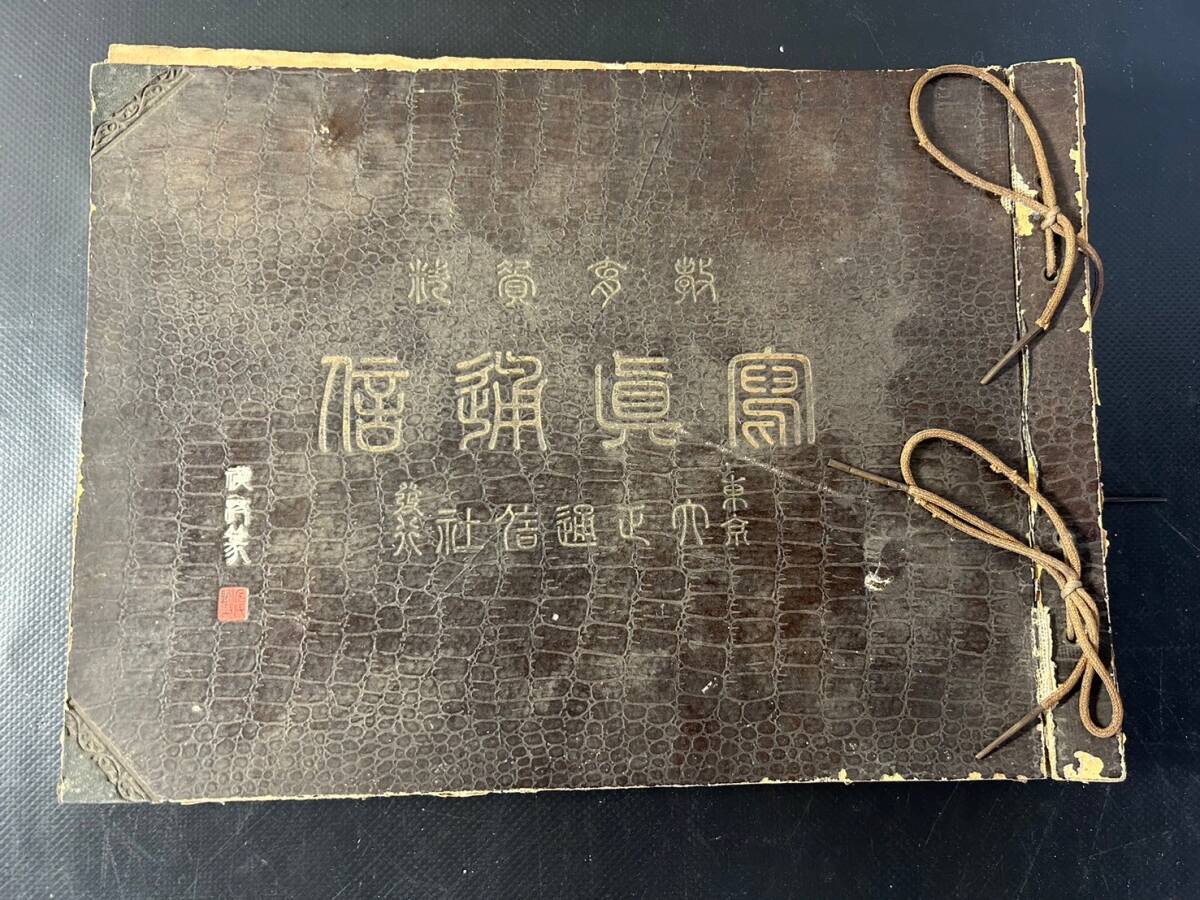 敎育資料
寫眞通信
東京 大正通信社 發行